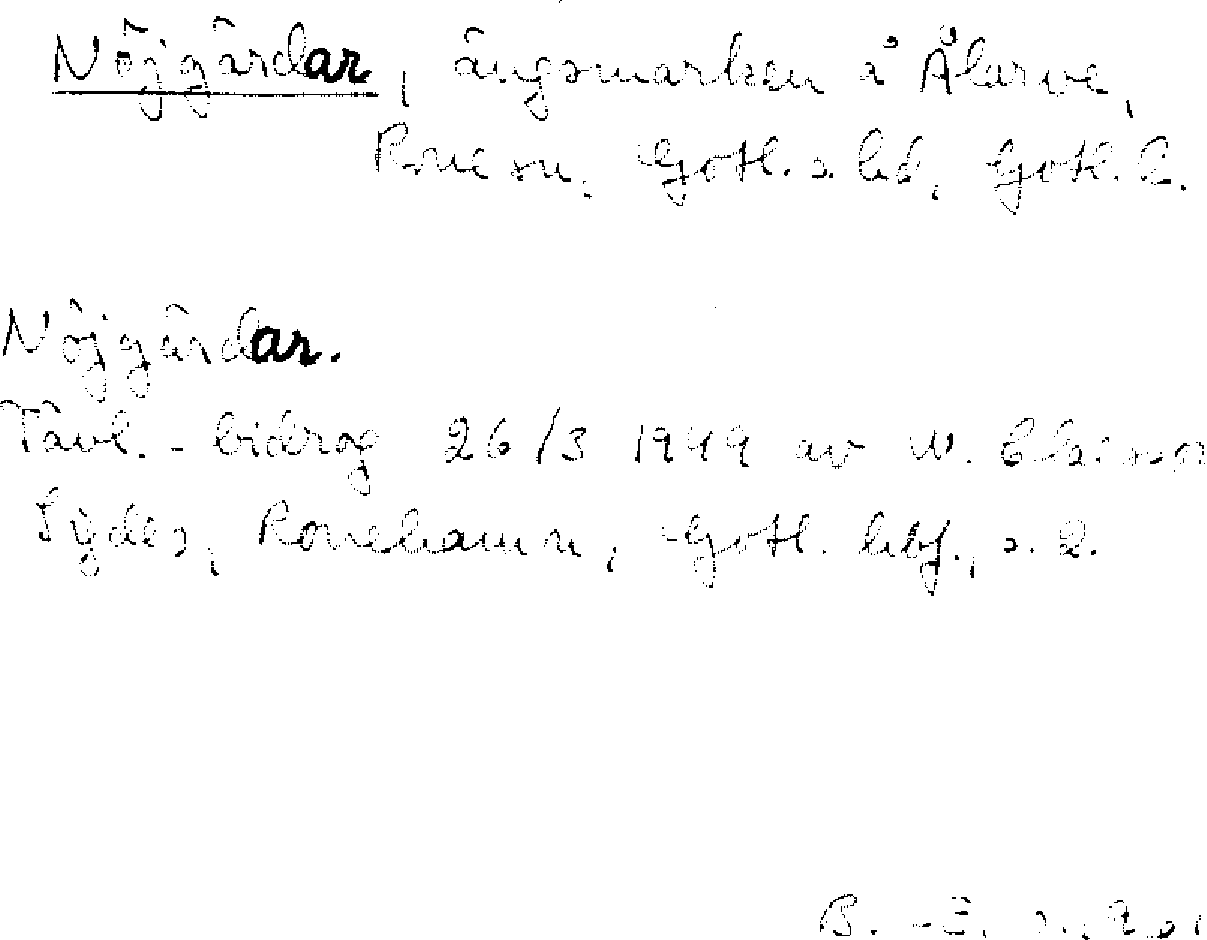 Nöjgärdar, ängsmarken å Ålarve,
Rone sn, Gotl. s. hd, Gotl. l.
Nöjgärdar.
Tävl. - bidrag 26/3 1949 av W.
Sydes, Ronehamn, Gotl. hbf., s. 2.
B. - E.